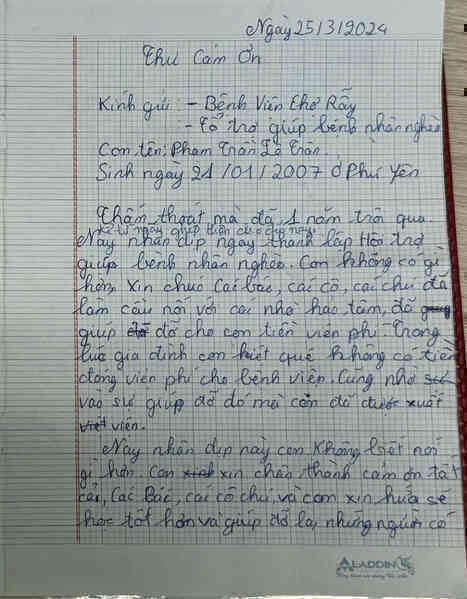 Ngày 25/3/2024
Thư Cám Ơn
Kính gửi: - Bệnh Viện Chợ Rẫy
- Tổ trợ giúp bệnh nhân nghèo
Con tên: Phạm Trần Lê Trân.
Sinh ngày 21/01/2007 Ở Phú Yên
Thấm thoát mà đã 1 năm trôi qua
kể từ ngày giúp
Nay nhân dịp ngày thành lập Hội trợ
giúp bệnh nhân nghèo. Con không có gì
hơn, xin chúc Các bác, các cô, các chú đã
làm cầu nối với các nhà hảo tâm, đã
giúp đỡ cho con tiền viện phí. Trong
lúc gia đình con kiệt quệ không có tiền
đóng viện phí cho bệnh viện. Cũng nhờ
vào sự giúp đỡ đó mà con đã được xuất
viện.
Nay nhân dịp này con không biết nói
gì hơn. Con xin chân thành cám ơn tất
cả, Các Bác, các cô chú, và con xin hứa sẽ
học tốt hơn và giúp đỡ lại những người có
ALADDIN